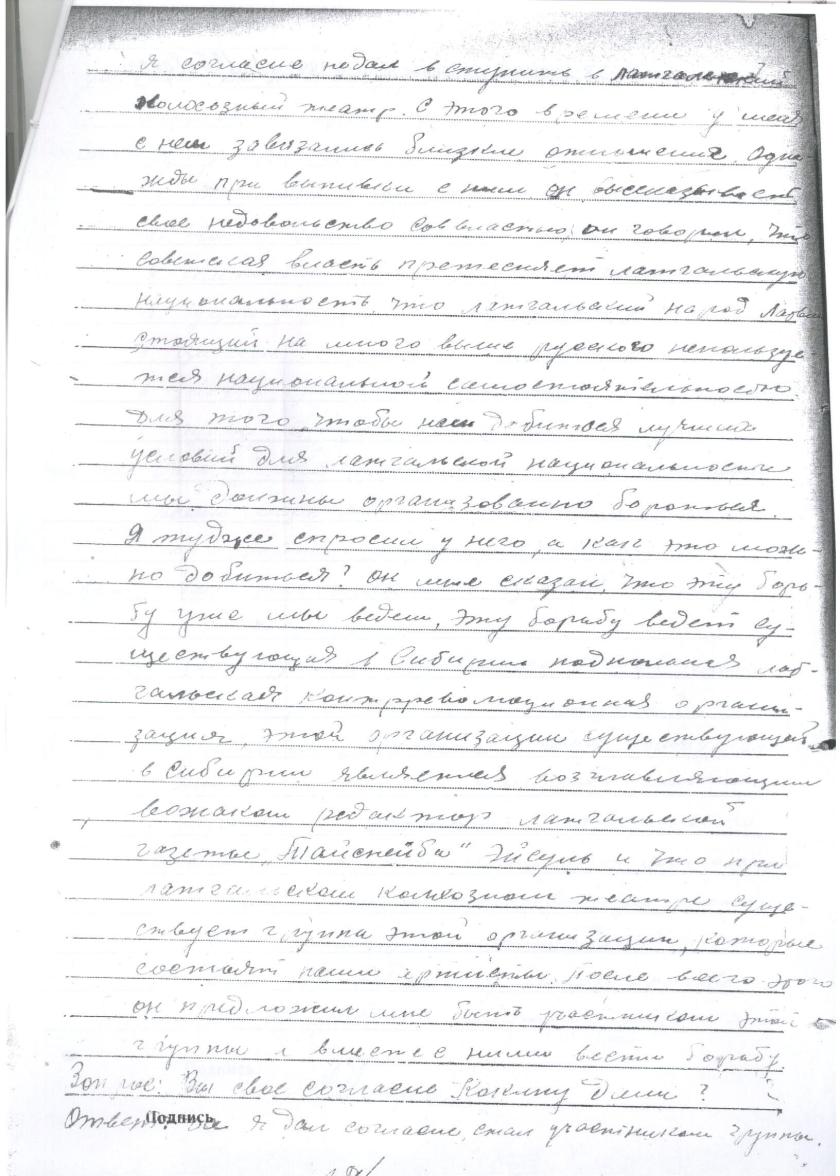 Я согласие подал вступить в латгальский
колхозный театр. С этого времени у меня
с ним завязались близкие отношения. Одна
жды при выпивки с ним он высказывает
свое недовольство соввластью, он говорил, что
советская власть притесняет латгальскую
национальность, что латгальский народ
стоящий на много выше русского непользуе-
тся национальной самостоятельностью.
Для того, чтобы нам добиться лучших
условий для латгальской национальности
мы должны организованно бороться.
Я тудже спросил у него, а как это мож-
но добиться? он мне сказал, что эту борь-
бу уже мы ведем, эту борьбу ведет су-
ществующая в Сибири подпольная лат-
гальская контрреволюционная органи-
зация, этой организации существующей
в Сибирии является возглавляющим
вожаком редактор латгальской
газеты „Тайснейба" Эйсуль и что при
латгальском колхозном театре суще-
ствует группа этой организации, которые
состоят наши артисты. После всего этого
он предложил мне быть участником этой
группы и вместе с ними вести борьбу
Вопрос: Вы свое согласие Кокину дали?
Ответ: Да я дал согласие, стал участником группы.
Подпись